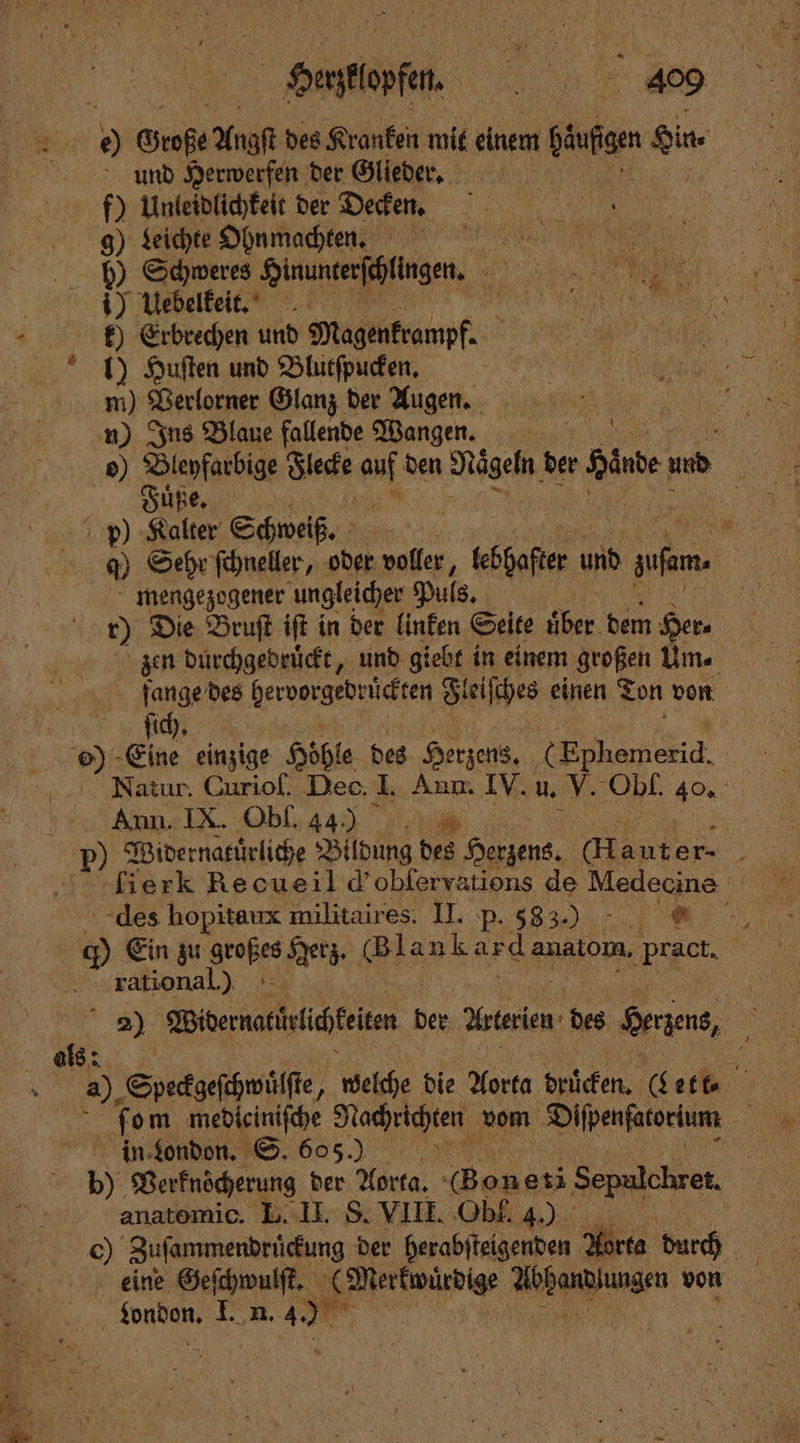 Herzklopfen. 409
e) Große Angſt des Kranken mit einem haͤufigen Hin-
und Herwerfen der Glieder.
f) Unleidlichkeit der Decken.
g) Leichte Ohnmachten.
h) Schweres Hinunterſchlingen.
i) Uebelkeit.
k) Erbrechen und Magenkrampf.
l) Huſten und Blutſpucken.
m) Verlorner Glanz der Augen.
n) Ins Blaue fallende Wangen.
o) Bleyfarbige Flecke auf den Naͤgeln der Haͤnde und
Fuͤße.
p) Kalter Schweiß.
q) Sehr ſchneller, oder voller, lebhafter und zuſam-
mengezogener ungleicher Puls.
r) Die Bruſt iſt in der linken Seite uͤber dem Her-
zen durchgedruͤckt, und giebt in einem großen Um-
fange des hervorgedruͤckten Fleiſches einen Ton von
ſich.
o) Eine einzige Hoͤhle des Herzens. (Ephemerid.
Natur. Curioſ. Dec. I. Ann. IV. u. V. Obſ. 40.
Ann. IX. Obſ. 44.)
p) Widernatuͤrliche Bildung des Herzens. (Hauter-
ſierk Recueil d'obſervations de Medecine
des hopitaux militaires. II. p. 583.)
q) Ein zu großes Herz. (Blankard anatom. pract.
rational.)
2) Widernatuͤrlichkeiten der Arterien des Herzens,
als:
a) Speckgeſchwuͤlſte, welche die Aorta druͤcken. (Lett-
ſom mediciniſche Nachrichten vom Diſpenſatorium
in London. S. 605.)
b) Verknoͤcherung der Aorta. (Boneti Sepulchret.
anatomic. L. II. S. VIII. Obſ. 4.)
c) Zuſammendruͤckung der herabſteigenden Aorta durch
eine Geſchwulſt. (Merkwuͤrdige Abhandlungen von
London. I. n. 4.)